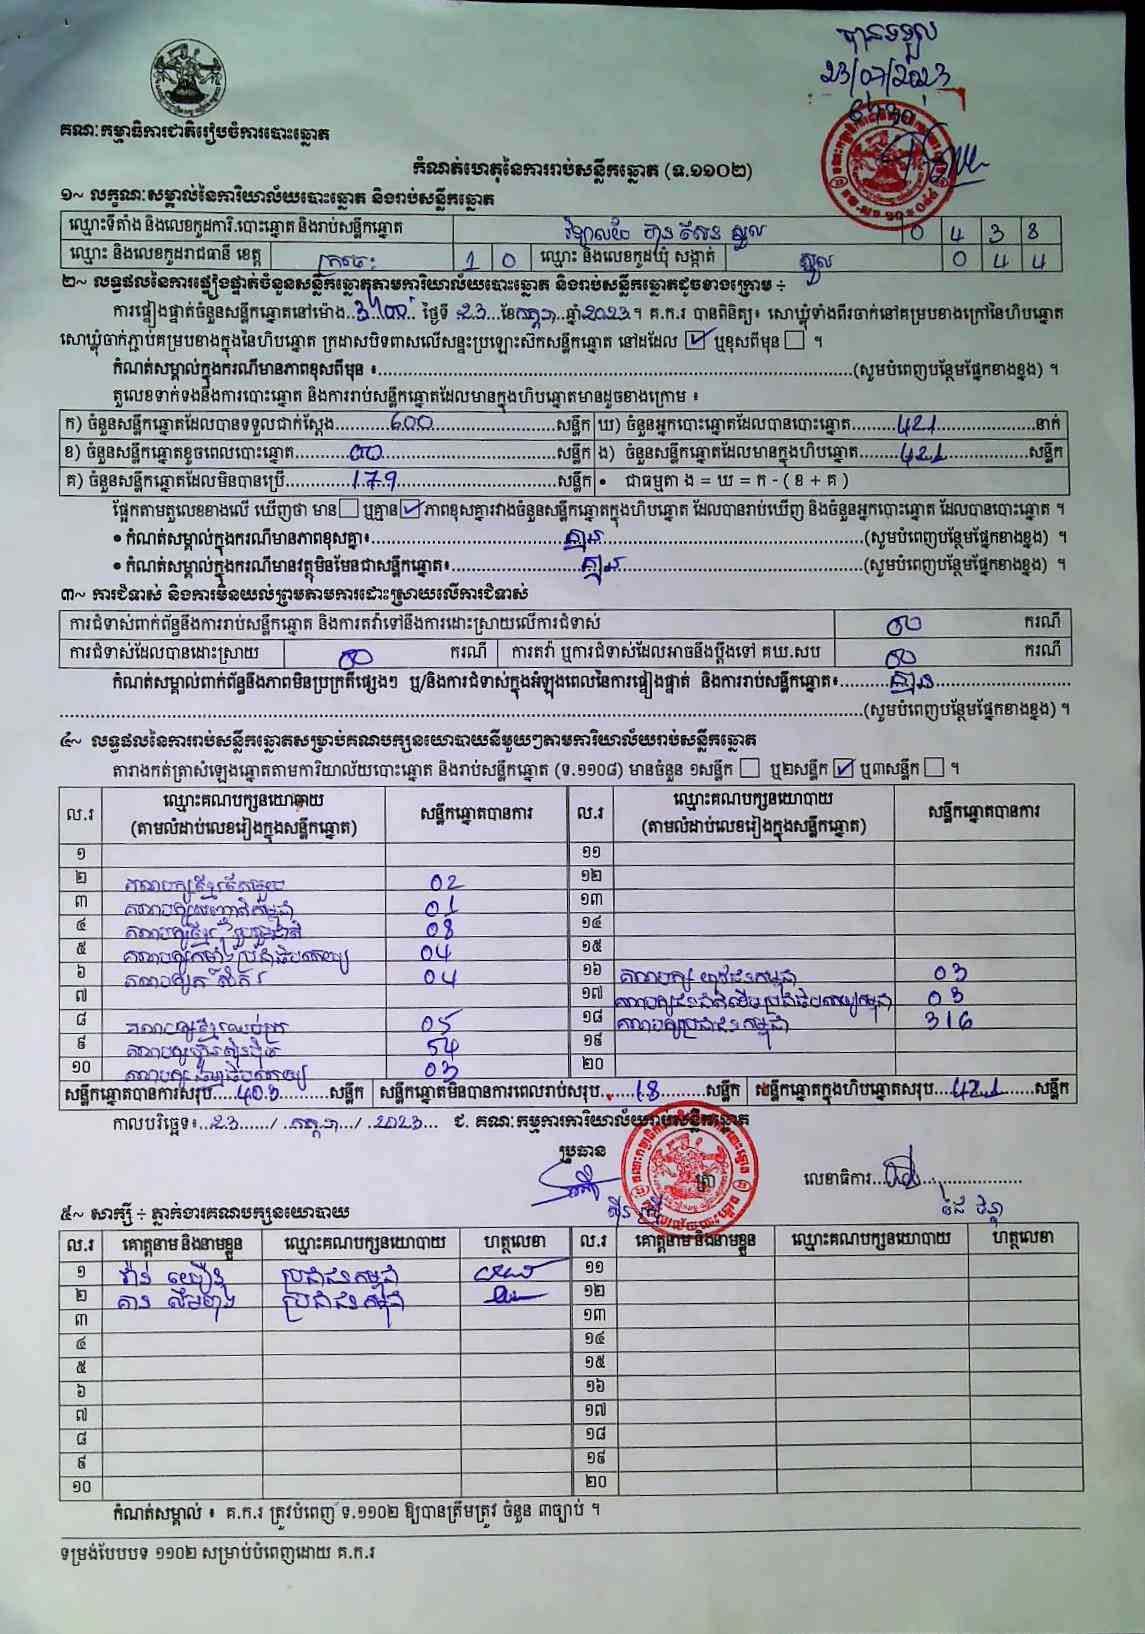 បានទទួល
23/07/2023
គណៈកម្មាធិការជាតិរៀបចំការបោះឆ្នោត
កំណត់ហេតុនៃការរាប់សន្លឹកឆ្នោត (ទ.១១០២)
១~ លក្ខណៈសម្គាល់នៃការិយាល័យបោះឆ្នោត និងរាប់សន្លឹកឆ្នោត
ឈ្មោះទីតាំង និងលេខកូដការិ.បោះឆ្នោត និងរាប់សន្លឹកឆ្នោត វិទ្យាល័យ ប៊ុន រ៉ានី ហ៊ុន សែន ស្នួល 0 4 3 8
ឈ្មោះ និងលេខកូដរាជធានី ខេត្ត ក្រចេះ 1 0 ឈ្មោះ និងលេខកូដឃុំ សង្កាត់ ស្នួល 0 4 4
២~ លទ្ធផលនៃការផ្ទៀងផ្ទាត់ចំនួនសន្លឹកឆ្នោតតាមការិយាល័យបោះឆ្នោត និងរាប់សន្លឹកឆ្នោតដូចខាងក្រោម ÷
ការផ្ទៀងផ្ទាត់ចំនួនសន្លឹកឆ្នោតនៅម៉ោង..3:00..ថ្ងៃទី.23...ខែកក្កដា..ឆ្នាំ2023។ គ.ក.រ បានពិនិត្យ៖ សោឃ្លុំទាំងពីរចាក់នៅគម្របខាងក្រៅនៃហិបឆ្នោត
សោឃ្លុំចាក់ភ្ជាប់គម្របខាងក្នុងនៃហិបឆ្នោត ក្រដាសបិទពាសលើសន្ទះប្រឡោះស៊កសន្លឹកឆ្នោត នៅដដែល ☑ ឬខុសពីមុន ☐ ។
កំណត់សម្គាល់ក្នុងករណីមានភាពខុសពីមុន ៖..........(សូមបំពេញបន្ថែមផ្នែកខាងខ្នង) ។
តួលេខទាក់ទងនឹងការបោះឆ្នោត និងការរាប់សន្លឹកឆ្នោតដែលមានក្នុងហិបឆ្នោតមានដូចខាងក្រោម ៖
ក) ចំនួនសន្លឹកឆ្នោតដែលបានទទួលជាក់ស្តែង..........600..........សន្លឹក ឃ) ចំនួនអ្នកបោះឆ្នោតដែលបានបោះឆ្នោត..........421..........នាក់
ខ) ចំនួនសន្លឹកឆ្នោតខូចពេលបោះឆ្នោត..........00..........សន្លឹក ង) ចំនួនសន្លឹកឆ្នោតដែលមានក្នុងហិបឆ្នោត..........421..........សន្លឹក
គ) ចំនួនសន្លឹកឆ្នោតដែលមិនបានប្រើ..........179..........សន្លឹក • ជាធម្មតា ង = ឃ = ក - ( ខ + គ )
ផ្អែកតាមតួលេខខាងលើ ឃើញថា មាន ☐ ឬគ្មាន ☑ ភាពខុសគ្នារវាងចំនួនសន្លឹកឆ្នោតក្នុងហិបឆ្នោត ដែលបានរាប់ឃើញ និងចំនួនអ្នកបោះឆ្នោត ដែលបានបោះឆ្នោត ។
• កំណត់សម្គាល់ក្នុងករណីមានភាពខុសគ្នា៖..........គ្មាន..........(សូមបំពេញបន្ថែមផ្នែកខាងខ្នង) ។
• កំណត់សម្គាល់ក្នុងករណីមានវត្ថុមិនមែនជាសន្លឹកឆ្នោត៖..........គ្មាន..........(សូមបំពេញបន្ថែមផ្នែកខាងខ្នង) ។
៣~ ការជំទាស់ និងការមិនយល់ព្រមតាមការដោះស្រាយលើការជំទាស់
ការជំទាស់ពាក់ព័ន្ធនឹងការរាប់សន្លឹកឆ្នោត និងការតវ៉ាទៅនឹងការដោះស្រាយលើការជំទាស់ 00 ករណី
ការជំទាស់ដែលបានដោះស្រាយ 00 ករណី ការតវ៉ា ឬការជំទាស់ដែលអាចនឹងប្តឹងទៅ គឃ.សប 00 ករណី
កំណត់សម្គាល់ពាក់ព័ន្ធនឹងភាពមិនប្រក្រតីផ្សេងៗ ឬ/និងការជំទាស់ក្នុងអំឡុងពេលនៃការផ្ទៀងផ្ទាត់ និងការរាប់សន្លឹកឆ្នោត៖..........គ្មាន..........
..........(សូមបំពេញបន្ថែមផ្នែកខាងខ្នង) ។
៤~ លទ្ធផលនៃការរាប់សន្លឹកឆ្នោតសម្រាប់គណបក្សនយោបាយនីមួយៗតាមការិយាល័យរាប់សន្លឹកឆ្នោត
តារាងកត់ត្រាសំឡេងឆ្នោតតាមការិយាល័យបោះឆ្នោត និងរាប់សន្លឹកឆ្នោត (ទ.១១០៨) មានចំនួន ១សន្លឹក ☐ ឬ២សន្លឹក ☑ ឬ៣សន្លឹក ☐ ។
ល.រ ឈ្មោះគណបក្សនយោបាយ (តាមលំដាប់លេខរៀងក្នុងសន្លឹកឆ្នោត) សន្លឹកឆ្នោតបានការ ល.រ ឈ្មោះគណបក្សនយោបាយ (តាមលំដាប់លេខរៀងក្នុងសន្លឹកឆ្នោត) សន្លឹកឆ្នោតបានការ
១ ១១
២ គណបក្សខ្មែរតែមួយ 02 ១២
៣ គណបក្សសញ្ជាតិកម្ពុជា 01 ១៣
៤ គណបក្សខ្មែររួបរួមជាតិ 08 ១៤
៥ គណបក្សកម្លាំងប្រជាធិបតេយ្យ 04 ១៥
៦ គណបក្សកសិករ 04 ១៦ គណបក្ស យុវជនកម្ពុជា 03
៧ ១៧ គណបក្សជនជាតិដើមប្រជាធិបតេយ្យកម្ពុជា 03
៨ គណបក្សខ្មែរឈប់ក្រ 05 ១៨ គណបក្សប្រជាជនកម្ពុជា 316
៩ គណបក្សហ៊្វុនស៊ិនប៉ិច 54 ១៩
១០ គណបក្ស ធម្មាធិបតេយ្យ 03 ២០
សន្លឹកឆ្នោតបានការសរុប....403..........សន្លឹក សន្លឹកឆ្នោតមិនបានការពេលរាប់សរុប......18.........សន្លឹក សន្លឹកឆ្នោតក្នុងហិបឆ្នោតសរុប....421......សន្លឹក
កាលបរិច្ឆេទ៖..23....../..កក្កដា.../..2023... ជ. គណៈកម្មការការិយាល័យរាប់សន្លឹកឆ្នោត
ប្រធាន
ត្រា លេខាធិការ....................
៥~ សាក្សី ÷ ភ្នាក់ងារគណបក្សនយោបាយ
ល.រ គោត្តនាម និងនាមខ្លួន ឈ្មោះគណបក្សនយោបាយ ហត្ថលេខា ល.រ គោត្តនាម និងនាមខ្លួន ឈ្មោះគណបក្សនយោបាយ ហត្ថលេខា
១ ប្រជាជនកម្ពុជា ១១
២ ប្រជាជនកម្ពុជា ១២
៣ ១៣
៤ ១៤
៥ ១៥
៦ ១៦
៧ ១៧
៨ ១៨
៩ ១៩
១០ ២០
កំណត់សម្គាល់ ៖ គ.ក.រ ត្រូវបំពេញ ទ.១១០២ ឱ្យបានត្រឹមត្រូវ ចំនួន ៣ច្បាប់ ។
ទម្រង់បែបបទ ១១០២ សម្រាប់បំពេញដោយ គ.ក.រ